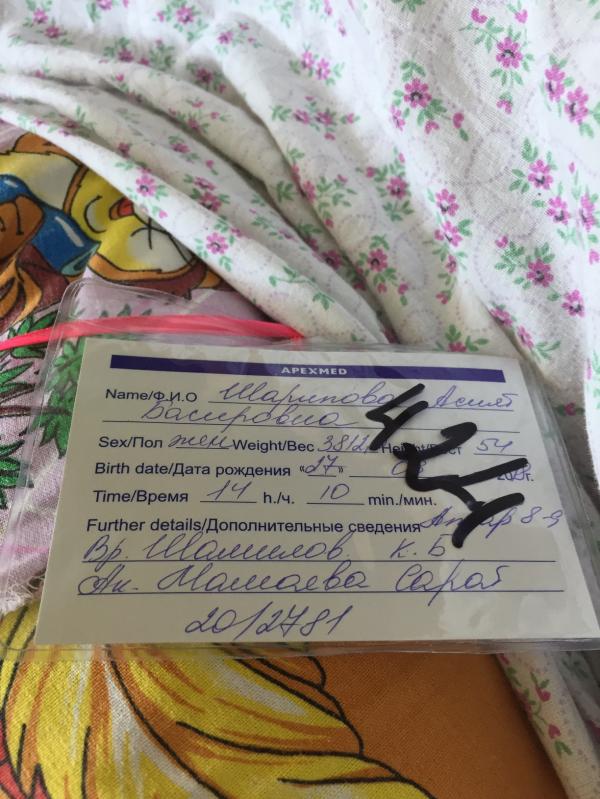 APEXMED
Name/Ф.И.О Шарипова Асият
Басировна
Sex/Пол жен Weight/Вес 3812 Height/Рост 54
Birth date/Дата рождения «27» 08 г.
Time/Время 14 h./ч. 10 min./мин.
Further details/Дополнительные сведения Апгар 8-9
Вр. Шамилов. К. Б
Ак. Мамаева Сарат
20/2781
424